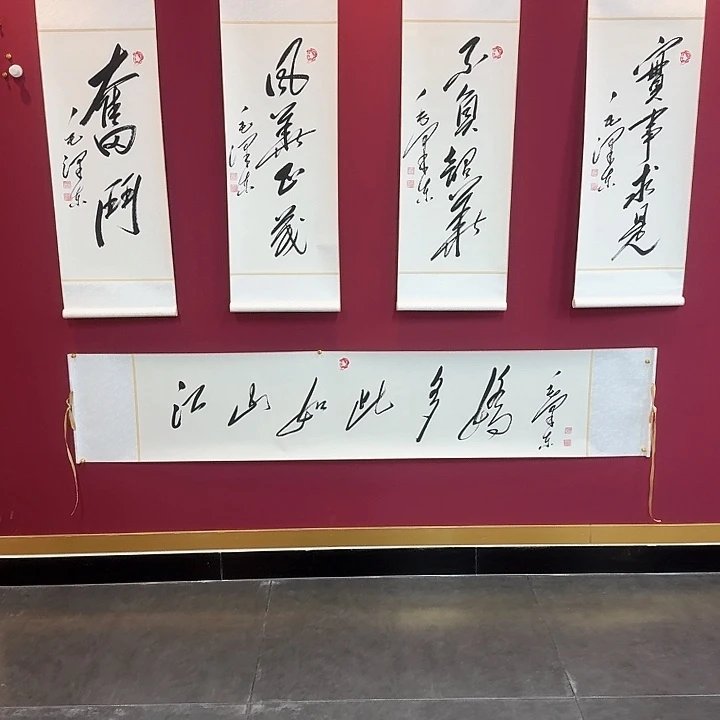 奮鬥
毛澤東
風華正茂
毛澤東
不負韶華
毛澤東
實事求是
毛澤東
江山如此多嬌
毛澤東